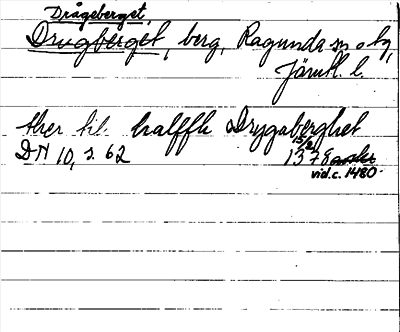 Drågeberget
Drugberget, berg, Ragunda sn o tg,
Jämtl. l.
ther til halffth Drygaberghet
15/2
DN 10, s. 62 1378
vid.c. 1480.